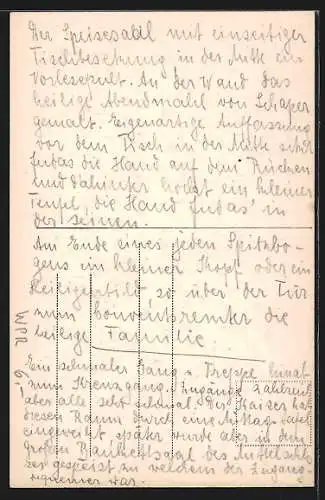 Der Speisesaal mit einseitiger
Tischbesetzung in der Mitte ein
Vorlesepult. An der Wand das
heilige Abendmahl von Schaper
gemalt. Eigenartige Auffassung
vor dem Tisch in der Mitte steht
Judas die Hand auf dem Rücken
und dahinter holst ein kleiner
Teufel, die Hand Judas' in
der seinen.
Am Ende eines jeden Spitzbo-
gens ein kleiner Kopf oder ein
Heiligenbild, so über der Tür
zum die
heilige Familie.
Ein schmaler Gang u. Treppe
zum Kreuzgang. Zugänge zahlreich
aber alle sehr schmal. Der Kaiser hat
diesen Raum durch eine
eingeweiht, später wurde aber in dem
großen des
gespeist zu welchem der Zugang
war.
WPR 6,-